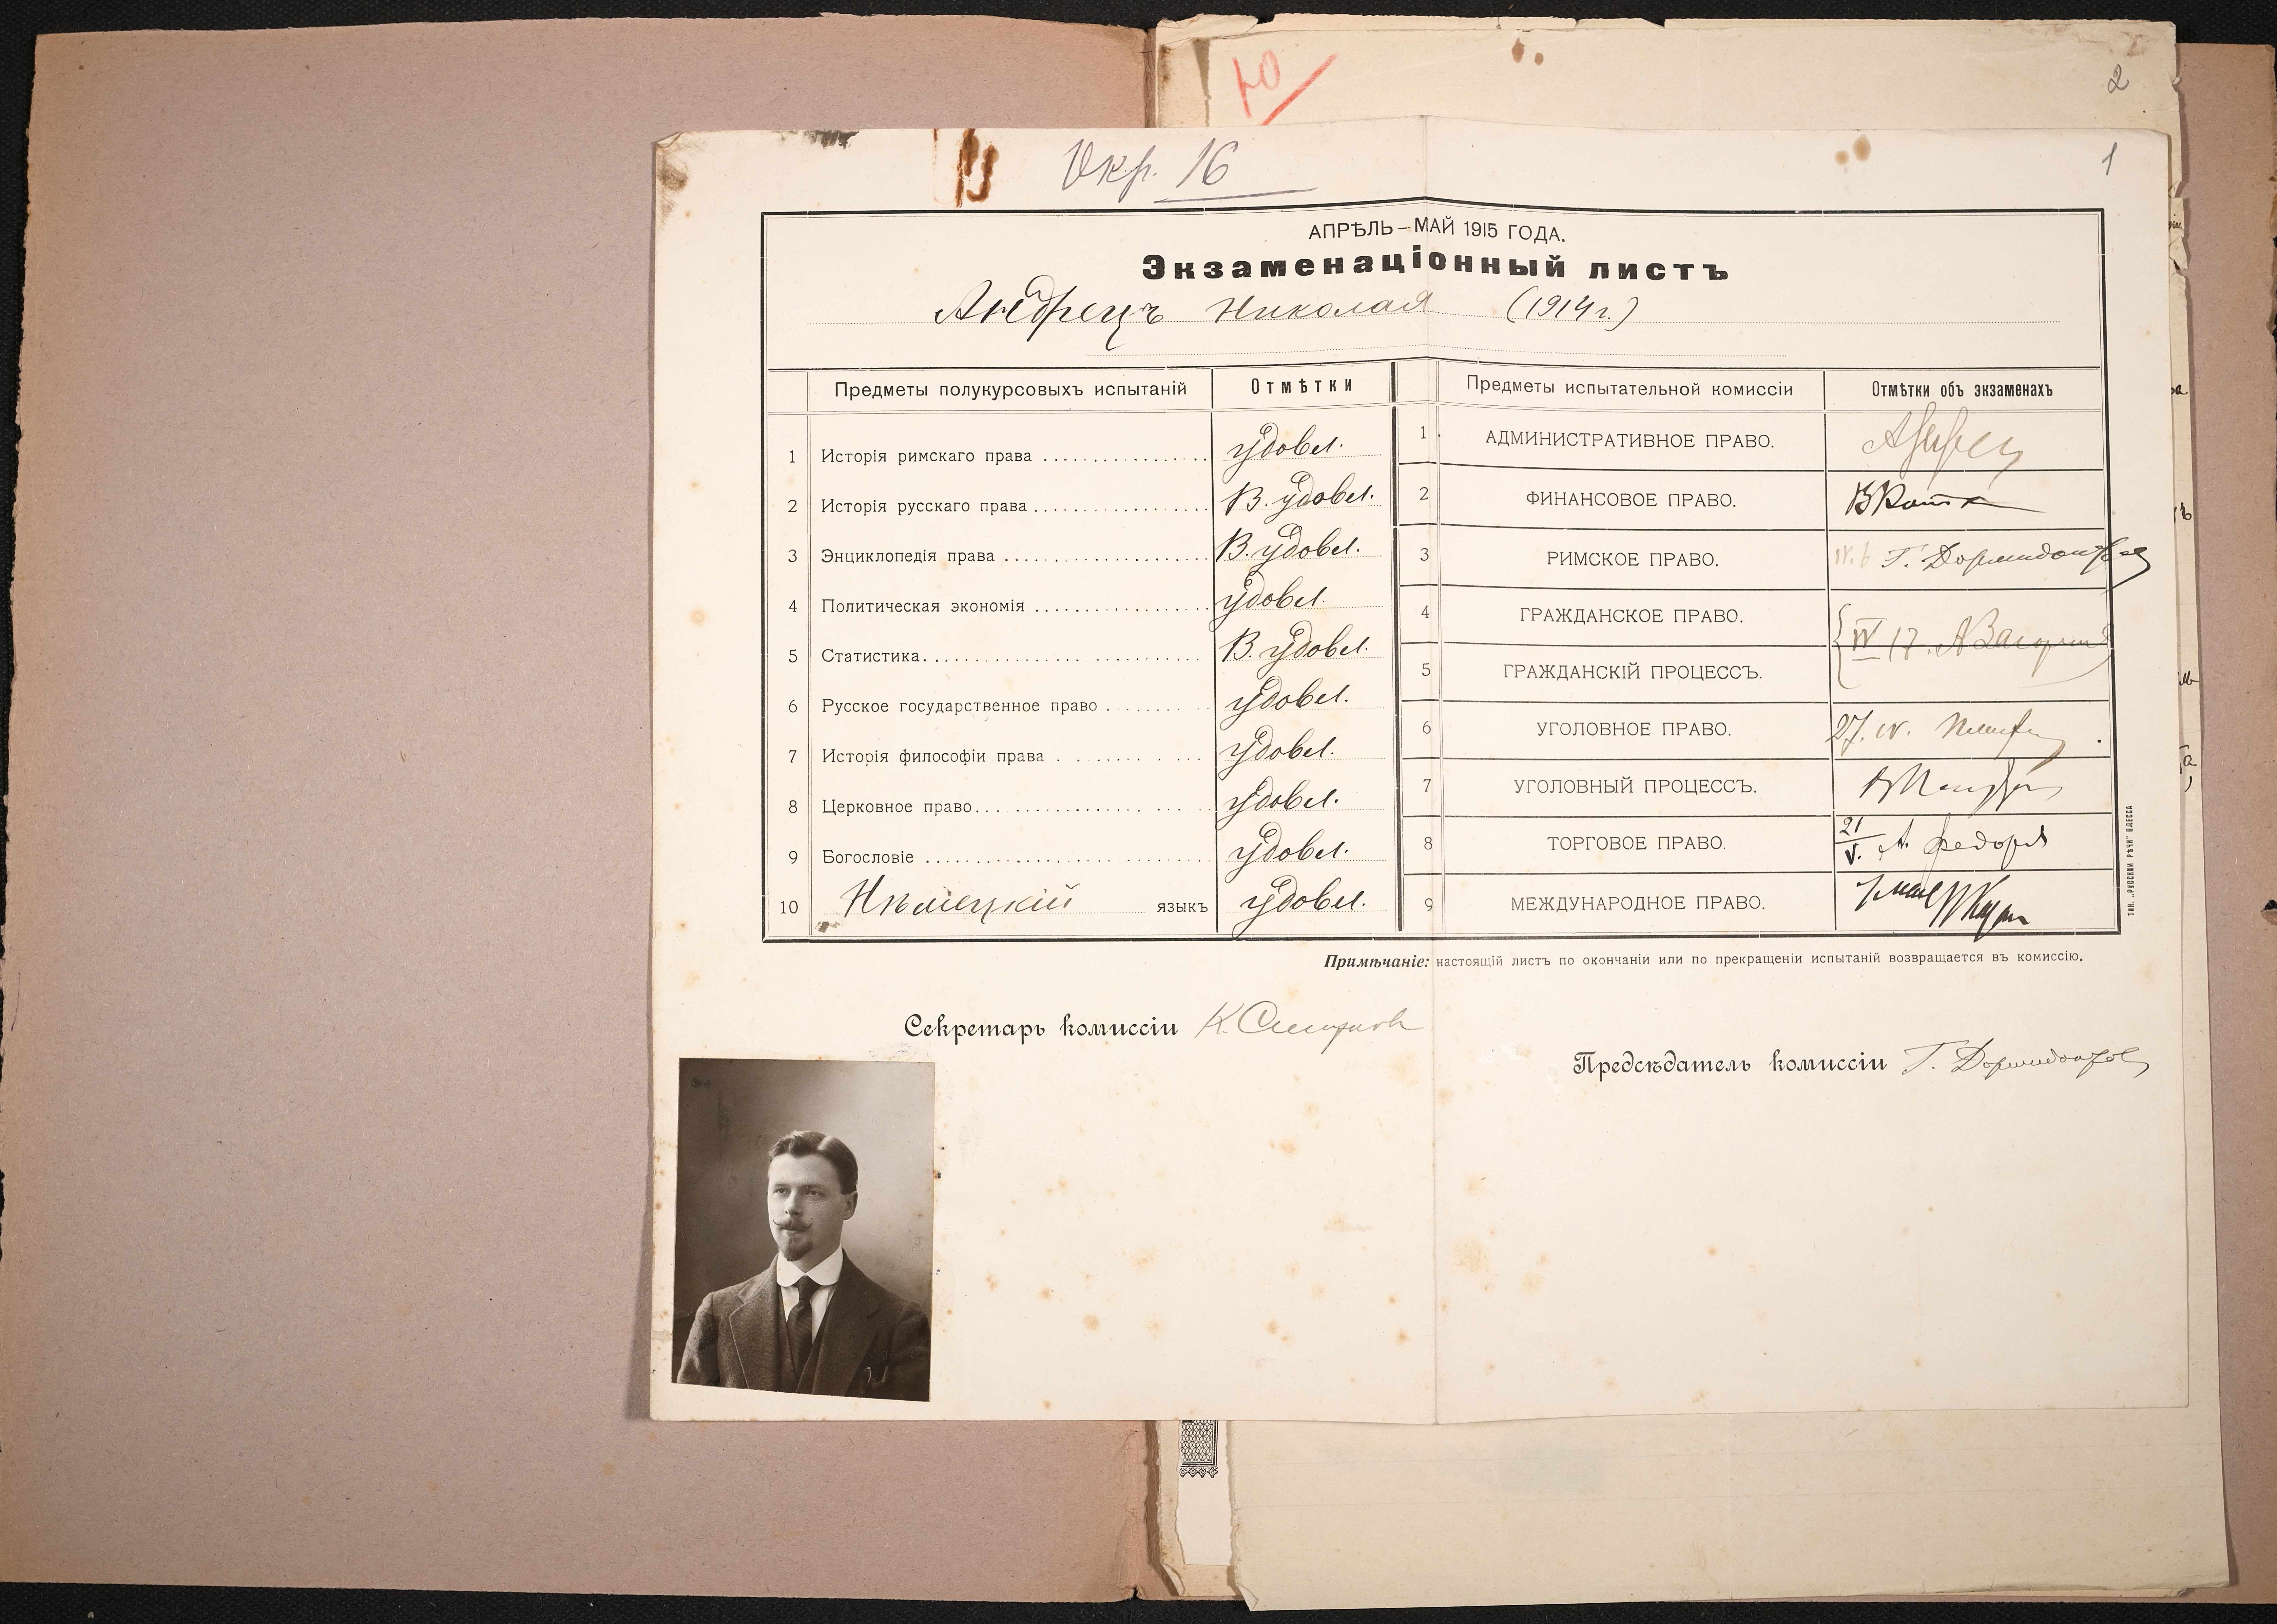 2
1
Окр. 16
АПРѢЛЬ–МАЙ 1915 ГОДА.
Экзаменаціонный листъ
Андрецъ Николая (1914 г.)
Предметы полукурсовыхъ испытаній Отмѣтки
1 Исторія римскаго права удовл.
2 Исторія русскаго права В. удовл.
3 Энциклопедія права В. удовл.
4 Политическая экономія удовл.
5 Статистика В. удовл.
6 Русское государственное право удовл.
7 Исторія философіи права удовл.
8 Церковное право удовл.
9 Богословіе удовл.
10 Нѣмецкій языкъ удовл.
Предметы испытательной комиссіи Отмѣтки объ экзаменахъ
1 АДМИНИСТРАТИВНОЕ ПРАВО.
2 ФИНАНСОВОЕ ПРАВО.
3 РИМСКОЕ ПРАВО. Г. Дормидонтовъ
4 ГРАЖДАНСКОЕ ПРАВО.
IV 17.
5 ГРАЖДАНСКІЙ ПРОЦЕССЪ.
6 УГОЛОВНОЕ ПРАВО. 27. IV.
7 УГОЛОВНЫЙ ПРОЦЕССЪ.
8 ТОРГОВОЕ ПРАВО. 21/V. А. Федоровъ
9 МЕЖДУНАРОДНОЕ ПРАВО.
ТИП. „РУССКОЙ РѢЧИ" ОДЕССА
Примѣчаніе: настоящій листъ по окончаніи или по прекращеніи испытаній возвращается въ комиссію.
Секретарь комиссіи К.
Предсѣдатель комиссіи Г. Дормидонтовъ